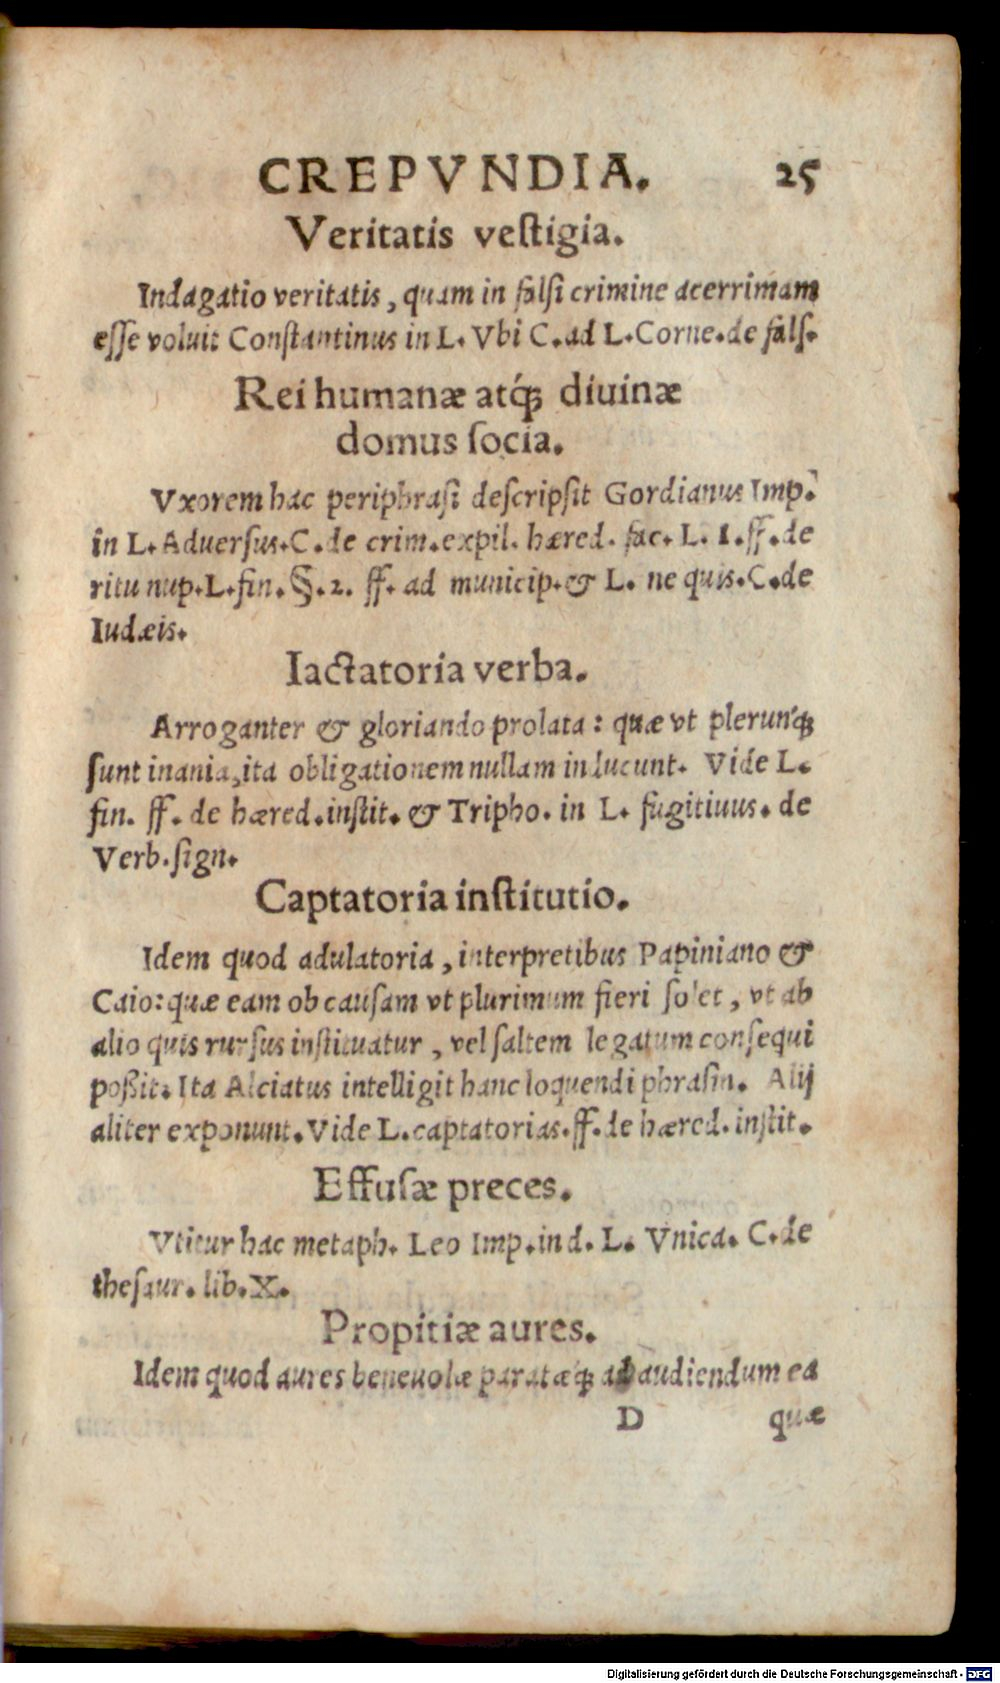 CREPVNDIA. 25
Veritatis vestigia.
Indagatio veritatis, quam in falsi crimine acerrimam
esse voluit Constantinus in L. Vbi C. ad L. Corne. de fals.
Rei humanæ atq́ꝫ diuinæ
domus socia.
Vxorem hac periphrasi descripsit Gordianus Imp.
in L. Aduersus. C. de crim. expil. hæred. fac. L. 1. ff. de
ritu nup. L. fin. §. 2. ff. ad municip. & L. ne quis. C. de
Iudæis.
Iactatoria verba.
Arroganter & gloriando prolata: quæ vt plerunq́ꝫ
sunt inania, ita obligationem nullam inducunt. Vide L.
fin. ff. de hæred. instit. & Tripho. in L. fugitiuus. de
Verb. sign.
Captatoria institutio.
Idem quod adulatoria, interpretibus Papiniano &
Caio: quæ eam ob causam vt plurimum fieri solet, vt ab
alio quis rursus instituatur, vel saltem legatum consequi
poßit. Ita Alciatus intelligit hanc loquendi phrasin. Alij
aliter exponunt. Vide L. captatorias. ff. de hæred. instit.
Effusæ preces.
Vtitur hac metaph. Leo Imp. in d. L. Vnica. C. de
thesaur. lib. X.
Propitiæ aures.
Idem quod aures beneuolæ paratæq́ꝫ ad audiendum ea
D quæ
Digitalisierung gefördert durch die Deutsche Forschungsgemeinschaft - DFG